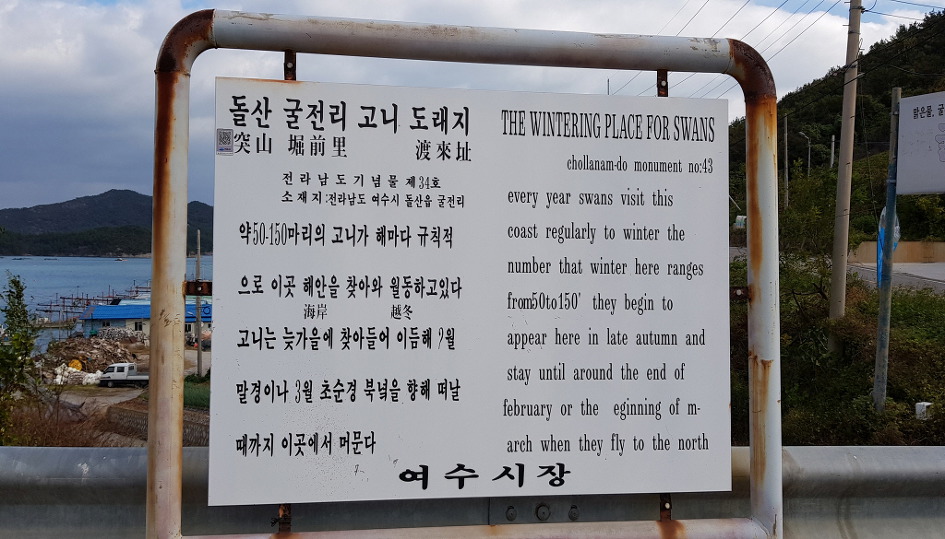 돌산 굴전리 고니 도래지
突山 堀前里 渡來址
전라남도기념물 제34호
소재지:전라남도 여수시 돌산읍 굴전리
약50-150마리의 고니가 해마다 규칙적
으로 이곳 해안을 찾아와 월동하고있다
海岸 越冬
고니는 늦가을에 찾아들어 이듬해 2월
말경이나 3월 초순경 북녘을 향해 떠날
때까지 이곳에서 머문다
THE WINTERING PLACE FOR SWANS
chollanam-do monument no:43
every year swans visit this
coast regularly to winter the
number that winter here ranges
from50to150' they begin to
appear here in late autumn and
stay until around the end of
february or the eginning of m-
arch when they fly to the north
여수시장
맑은물, 굴